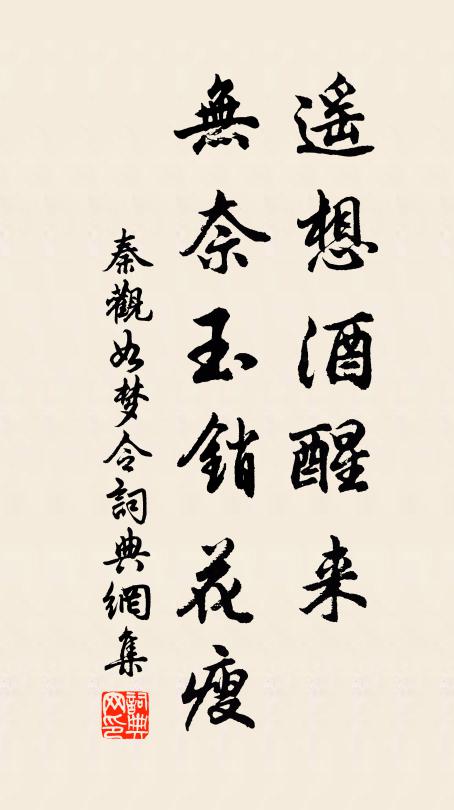 遥想酒醒来
無奈玉銷花瘦
秦觀如梦令詞典網集
詞典网印